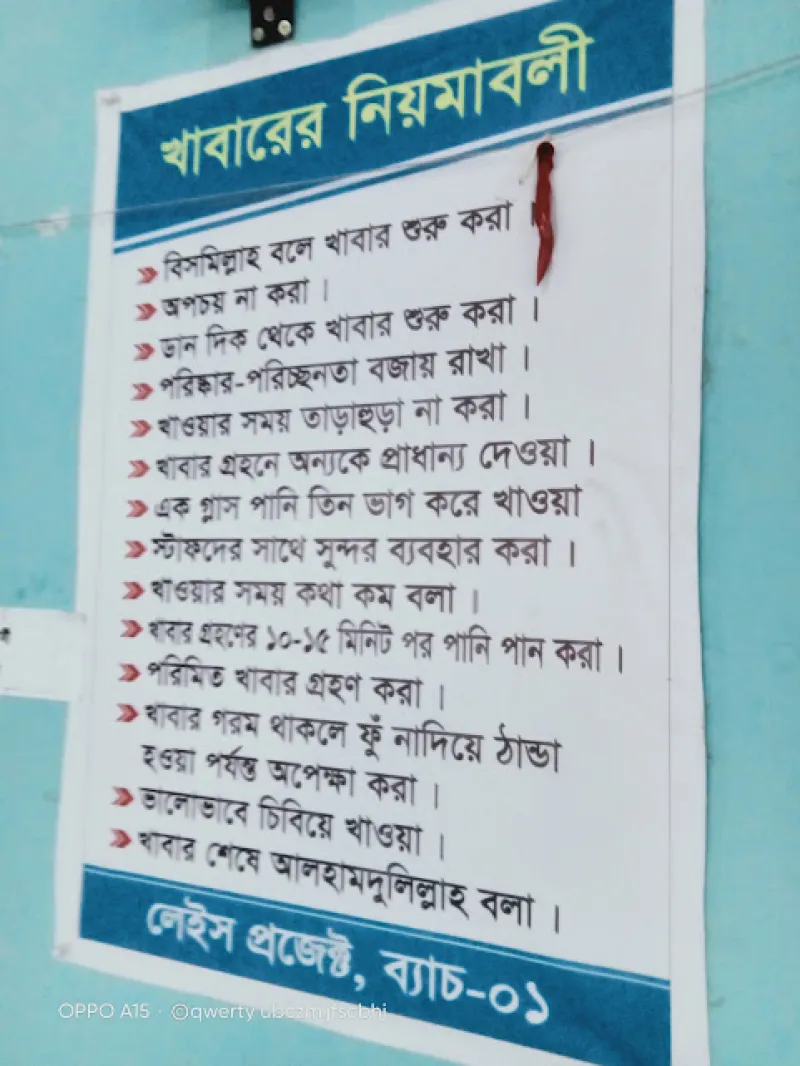 খাবারের নিয়মাবলী
বিসমিল্লাহ বলে খাবার শুরু করা
অপচয় না করা ।
ডান দিক থেকে খাবার শুরু করা ।
পরিষ্কার-পরিচ্ছনতা বজায় রাখা ।
খাওয়ার সময় তাড়াহুড়া না করা ।
খাবার গ্রহনে অন্যকে প্রাধান্য দেওয়া ।
এক গ্লাস পানি তিন ভাগ করে খাওয়া
স্টাফদের সাথে সুন্দর ব্যবহার করা ।
খাওয়ার সময় কথা কম বলা ।
খাবার গ্রহণের ১০-১৫ মিনিট পর পানি পান করা ।
পরিমিত খাবার গ্রহণ করা ।
খাবার গরম থাকলে ফুঁ নাদিয়ে ঠান্ডা
হওয়া পর্যন্ত অপেক্ষা করা ।
ভালোভাবে চিবিয়ে খাওয়া ।
খাবার শেষে আলহামদুলিল্লাহ বলা ।
লেইস প্রজেক্ট, ব্যাচ-০১
OPPO A15 · ©qwerty ubczmjfscbhj